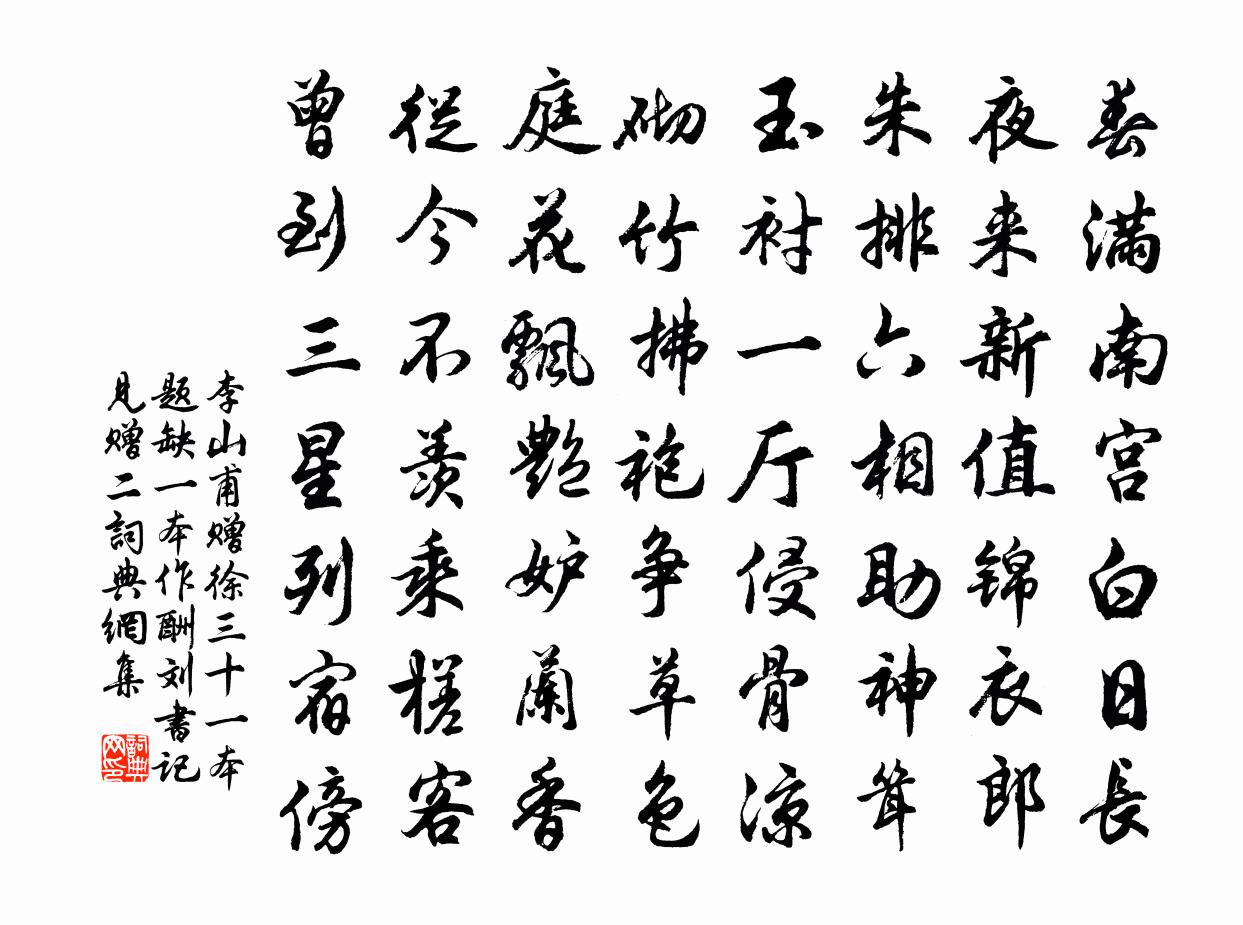 春滿南宫白日長
夜来新值锦衣郎
朱排六相助神耸
玉衬一厅侵骨凉
砌竹拂袍争草色
庭花飄艷妒蘭香
從今不羨乘槎客
曾到三星列宿傍
李山甫赠徐三十一本
题缺一本作酬刘書记
見赠二詞典網集
詞典网印